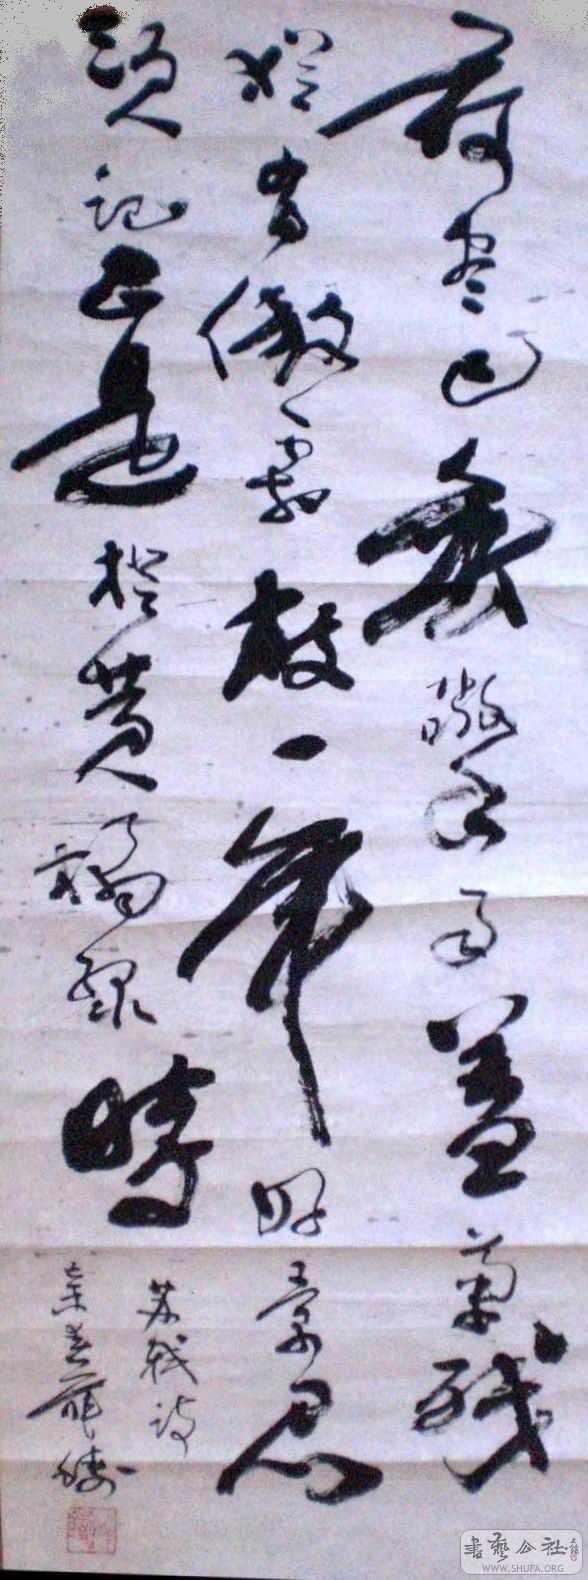 荷尽已無擎雨盖菊残
猶有傲霜枝一年好景君
須記正是橙黄橘緑時
苏軾诗
書藝公社
WWW.SHUFA.ORG